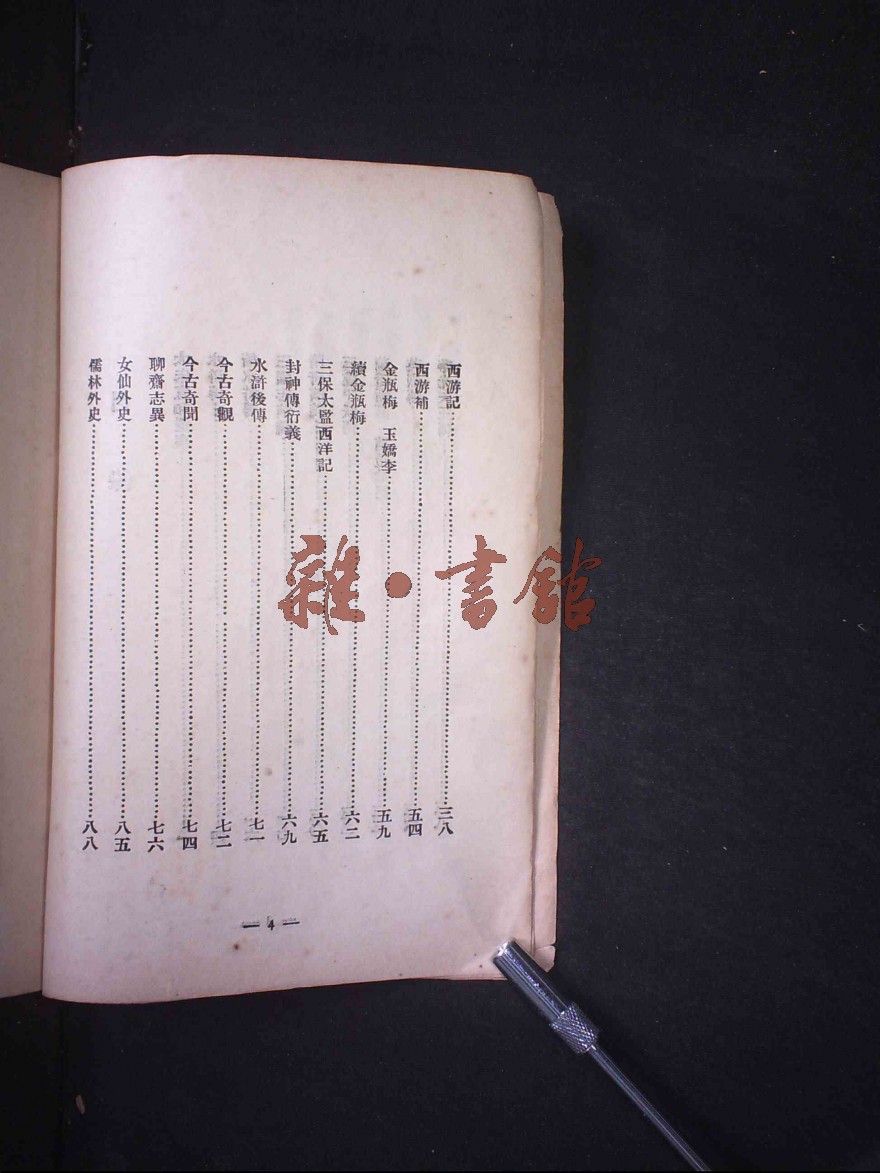 西游記⋯⋯⋯⋯三八
西游補⋯⋯⋯⋯五四
金瓶梅　玉嬌李⋯⋯⋯⋯五九
續金瓶梅⋯⋯⋯⋯六二
三保太監西洋記⋯⋯⋯⋯六五
封神傳衍義⋯⋯⋯⋯六九
水滸後傳⋯⋯⋯⋯七一
今古奇觀⋯⋯⋯⋯七二
今古奇聞⋯⋯⋯⋯七四
聊齋志異⋯⋯⋯⋯七六
女仙外史⋯⋯⋯⋯八五
儒林外史⋯⋯⋯⋯八八
— 4 —
雜·書館